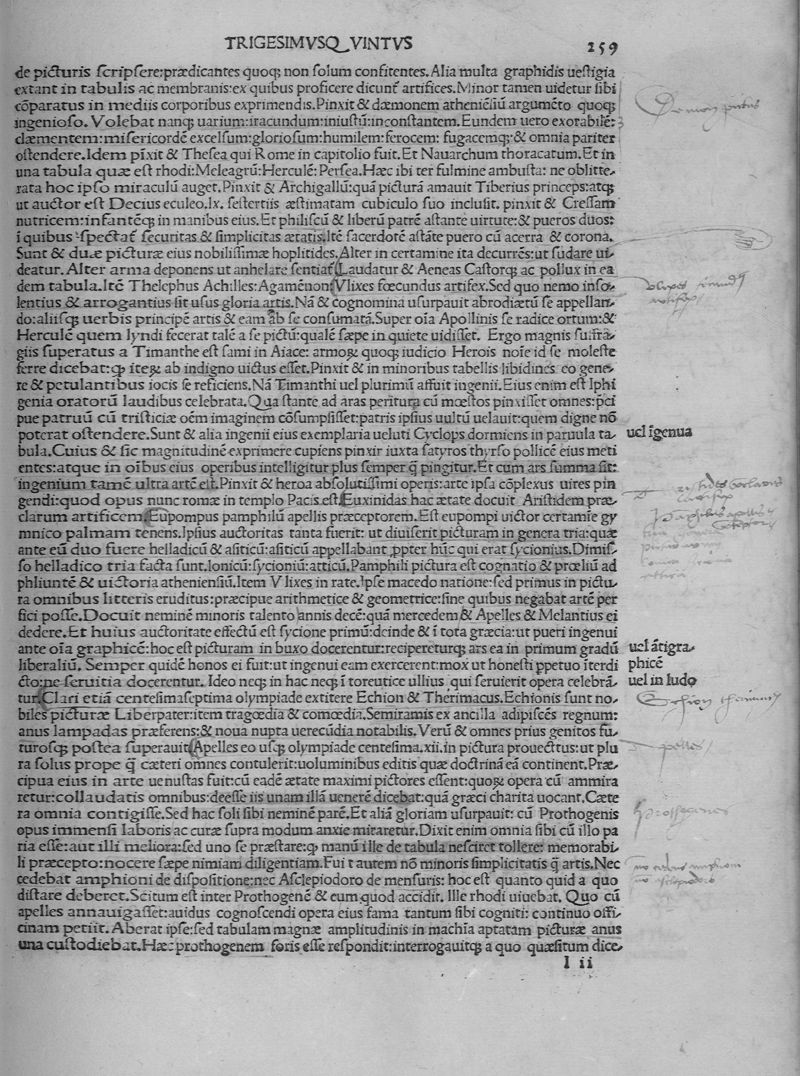 TRIGESIMVSQVINTVS 259
de picturis scripsere:prædicantes quoq; non solum confitentes.Alia multa graphidis uestigia
extant in tabulis ac membranis:ex quibus proficere dicunt̃ artifices.Minor tamen uidetur sibi
cōparatus in mediis corporibus exprimendis.Pinxit & dæmonem atheniẽsiũ argumẽto quoq;
ingenioso. Volebat nanq; uarium:iracundum:iniustũ:inconstantem.Eundem uero exorabilẽ:
clæmentem:misericordẽ excelsum:gloriosum:humilem:ferocem: fugacemq;:& omnia pariter
ostendere.Idem pīxit & Thesea qui Rome in capitolio fuit.Et Nauarchum thoracatum.Et in
una tabula quæ est rhodi:Meleagrũ:Herculẽ:Persea.Hæc ibi ter fulmine ambusta: ne oblitte⸗
rata hoc ipso miraculũ auget.Pinxit & Archigallũ:quã picturã amauit Tiberius princeps:atq;
ut auctor est Decius eculeo.lx. sestertiis æstimatam cubiculo suo inclusit. pinxit & Cressam
nutricem:infantẽq; in manibus eius.Et philiscũ & liberũ patrẽ astante uirtute:& pueros duos:
ī quibus spectat̃ securitas & simplicitas ætatis.Itẽ sacerdotẽ astāte puero cũ acerra & corona.
Sunt & duæ picturæ eius nobilissimæ hoplitides.Alter in certamine ita decurrẽs:ut sudare ui⸗
deatur.Alter arma deponens ut anhelare sentiat̃.Laudatur & Aeneas Castorq; ac pollux in ea
dem tabula.Itẽ Thelephus Achilles:Agamẽnon:Vlixes fœcundus artifex.Sed quo nemo inso⸗
lentius & arrogantius sit usus gloria artis.Nã & cognomina usurpauit abrodiætũ se appellan⸗
do:aliisq; uerbis principẽ artis & eam ab se consumatã.Super oīa Apollinis se radice ortum:&
Herculẽ quem lyndi fecerat talẽ a se pictũ:qualẽ sæpe in quiete uidisset. Ergo magnis suffra⸗
giis superatus a Timanthe est sami in Aiace: armoꝝ quoq; iudicio Herois noīe id se moleste
ferre dicebat:ꝙ iteꝝ ab indigno uictus esset.Pinxit & in minoribus tabellis libidines eo gene⸗
re & petulantibus iocis se reficiens.Nã Timanthi uel plurimũ affuit ingenii.Eius enim est Iphi
genia oratorũ laudibus celebrata.Qua stante ad aras peritura cũ mœstos pinxisset omnes:p̃ci
pue patruũ cũ tristiciæ oẽm imaginem cōsumpsisset:patris ipsius uultũ uelauit:quem digne nō
poterat ostendere.Sunt & alia ingenii eius exemplaria ueluti Cyclops dormiens in paruula ta⸗ uel īgenua
bula.Cuius & sic magnitudinẽ exprimere cupiens pinxir iuxta satyros thyrso pollicẽ eius meti
entes:atque in oībus eius operibus intelligitur plus semper q̃ pingitur.Et cum ars summa sit:
ingenium tamẽ ultra artẽ est.Pinxit & heroa absolutissimi operis:arte ipsa cōplexus uires pin
gendi:quod opus nunc romæ in templo Pacis.est.Euxinidas hac ætate docuit Aristidem præ⸗
clarum artificem.Eupompus pamphilũ apellis præceptorem.Est eupompi uictor certamīe gy
mnico palmam tenens.Ipsius auctoritas tanta fuerit: ut diuiserit picturam in genera tria:quæ
ante eũ duo fuere helladicũ & asiticũ:asiticũ appellabant ꝓpter hũc qui erat sycionius.Dimis⸗
so helladico tria facta sunt.Ionicũ:sycioniũ:atticũ.Pamphili pictura est cognatio & prœliũ ad
phliuntẽ & uictoria atheniensiũ.Item Vlixes in rate.Ipse macedo natione:sed primus in pictu⸗
ra omnibus litteris eruditus:præcipue arithmetice & geometrice:sine quibus negabat artẽ per
fici posse.Docuit neminẽ minoris talento annis decẽ:quã mercedem & Apelles & Melantius ei
dedere.Et huius auctoritate effectũ est sycione primũ:deinde & ī tota græcia:ut pueri ingenui
ante oīa graphicẽ:hoc est picturam in buxo docerentur:recipereturq; ars ea in primum gradũ uel ātigra⸗
liberaliũ. Semper quidẽ honos ei fuit:ut ingenui eam exercerent:mox ut honesti ꝑpetuo īterdi phicẽ
cto:ne seruitia docerentur. Ideo neq; in hac neq; ī toreutice ullius qui seruierit opera celebrã⸗ uel in ludo
tur.Clari etiã centesimaseptima olympiade extitere Echion & Therimacus.Echionis sunt no⸗
biles picturæ Liberpater:item tragœdia & comœdia.Semiramis ex ancilla adipiscẽs regnum:
anus lampadas præferens:& noua nupta uerecũdia notabilis. Verũ & omnes prius genitos fu⸗
turosq; postea superauit Apelles eo usq; olympiade centesima.xii.in pictura prouectus:ut plu
ra solus prope q̃ cæteri omnes contulerit:uoluminibus editis quæ doctrinã eã continent.Præ⸗
cipua eius in arte uenustas fuit:cũ eadẽ ætate maximi pictores essent:quoꝝ opera cũ ammira
retur:collaudatis omnibus:deesse iis unam illã uenerẽ dicebat:quã græci charita uocant.Cæte
ra omnia contigisse.Sed hac soli sibi neminẽ parẽ.Et aliã gloriam usurpauit: cũ Prothogenis
opus immensi laboris ac curæ supra modum anxie miraretur.Dixit enim omnia sibi cũ illo pa
ria esse:aut illi meliora:sed uno se præstare:ꝙ manũ ille de tabula nesciret tollere: memorabi⸗
li præcepto:nocere sæpe nimiam diligentiam.Fuit autem nō minoris simplicitatis q̃ artis.Nec
cedebat amphioni de dispositione:nec Asclepiodoro de mensuris: hoc est quanto quid a quo
distare deberet.Scitum est inter Prothogenẽ & eum quod accidit. Ille rhodi uiuebat. Quo cũ
apelles annauigasset:auidus cognoscendi opera eius fama tantum sibi cogniti: continuo offi⸗
cinam petiit. Aberat ipse:sed tabulam magnæ amplitudinis in machīa aptatam picturæ anus
una custodiebat.Hæc prothogenem foris esse respondit:interrogauitq; a quo quæsitum dice⸗
l ii